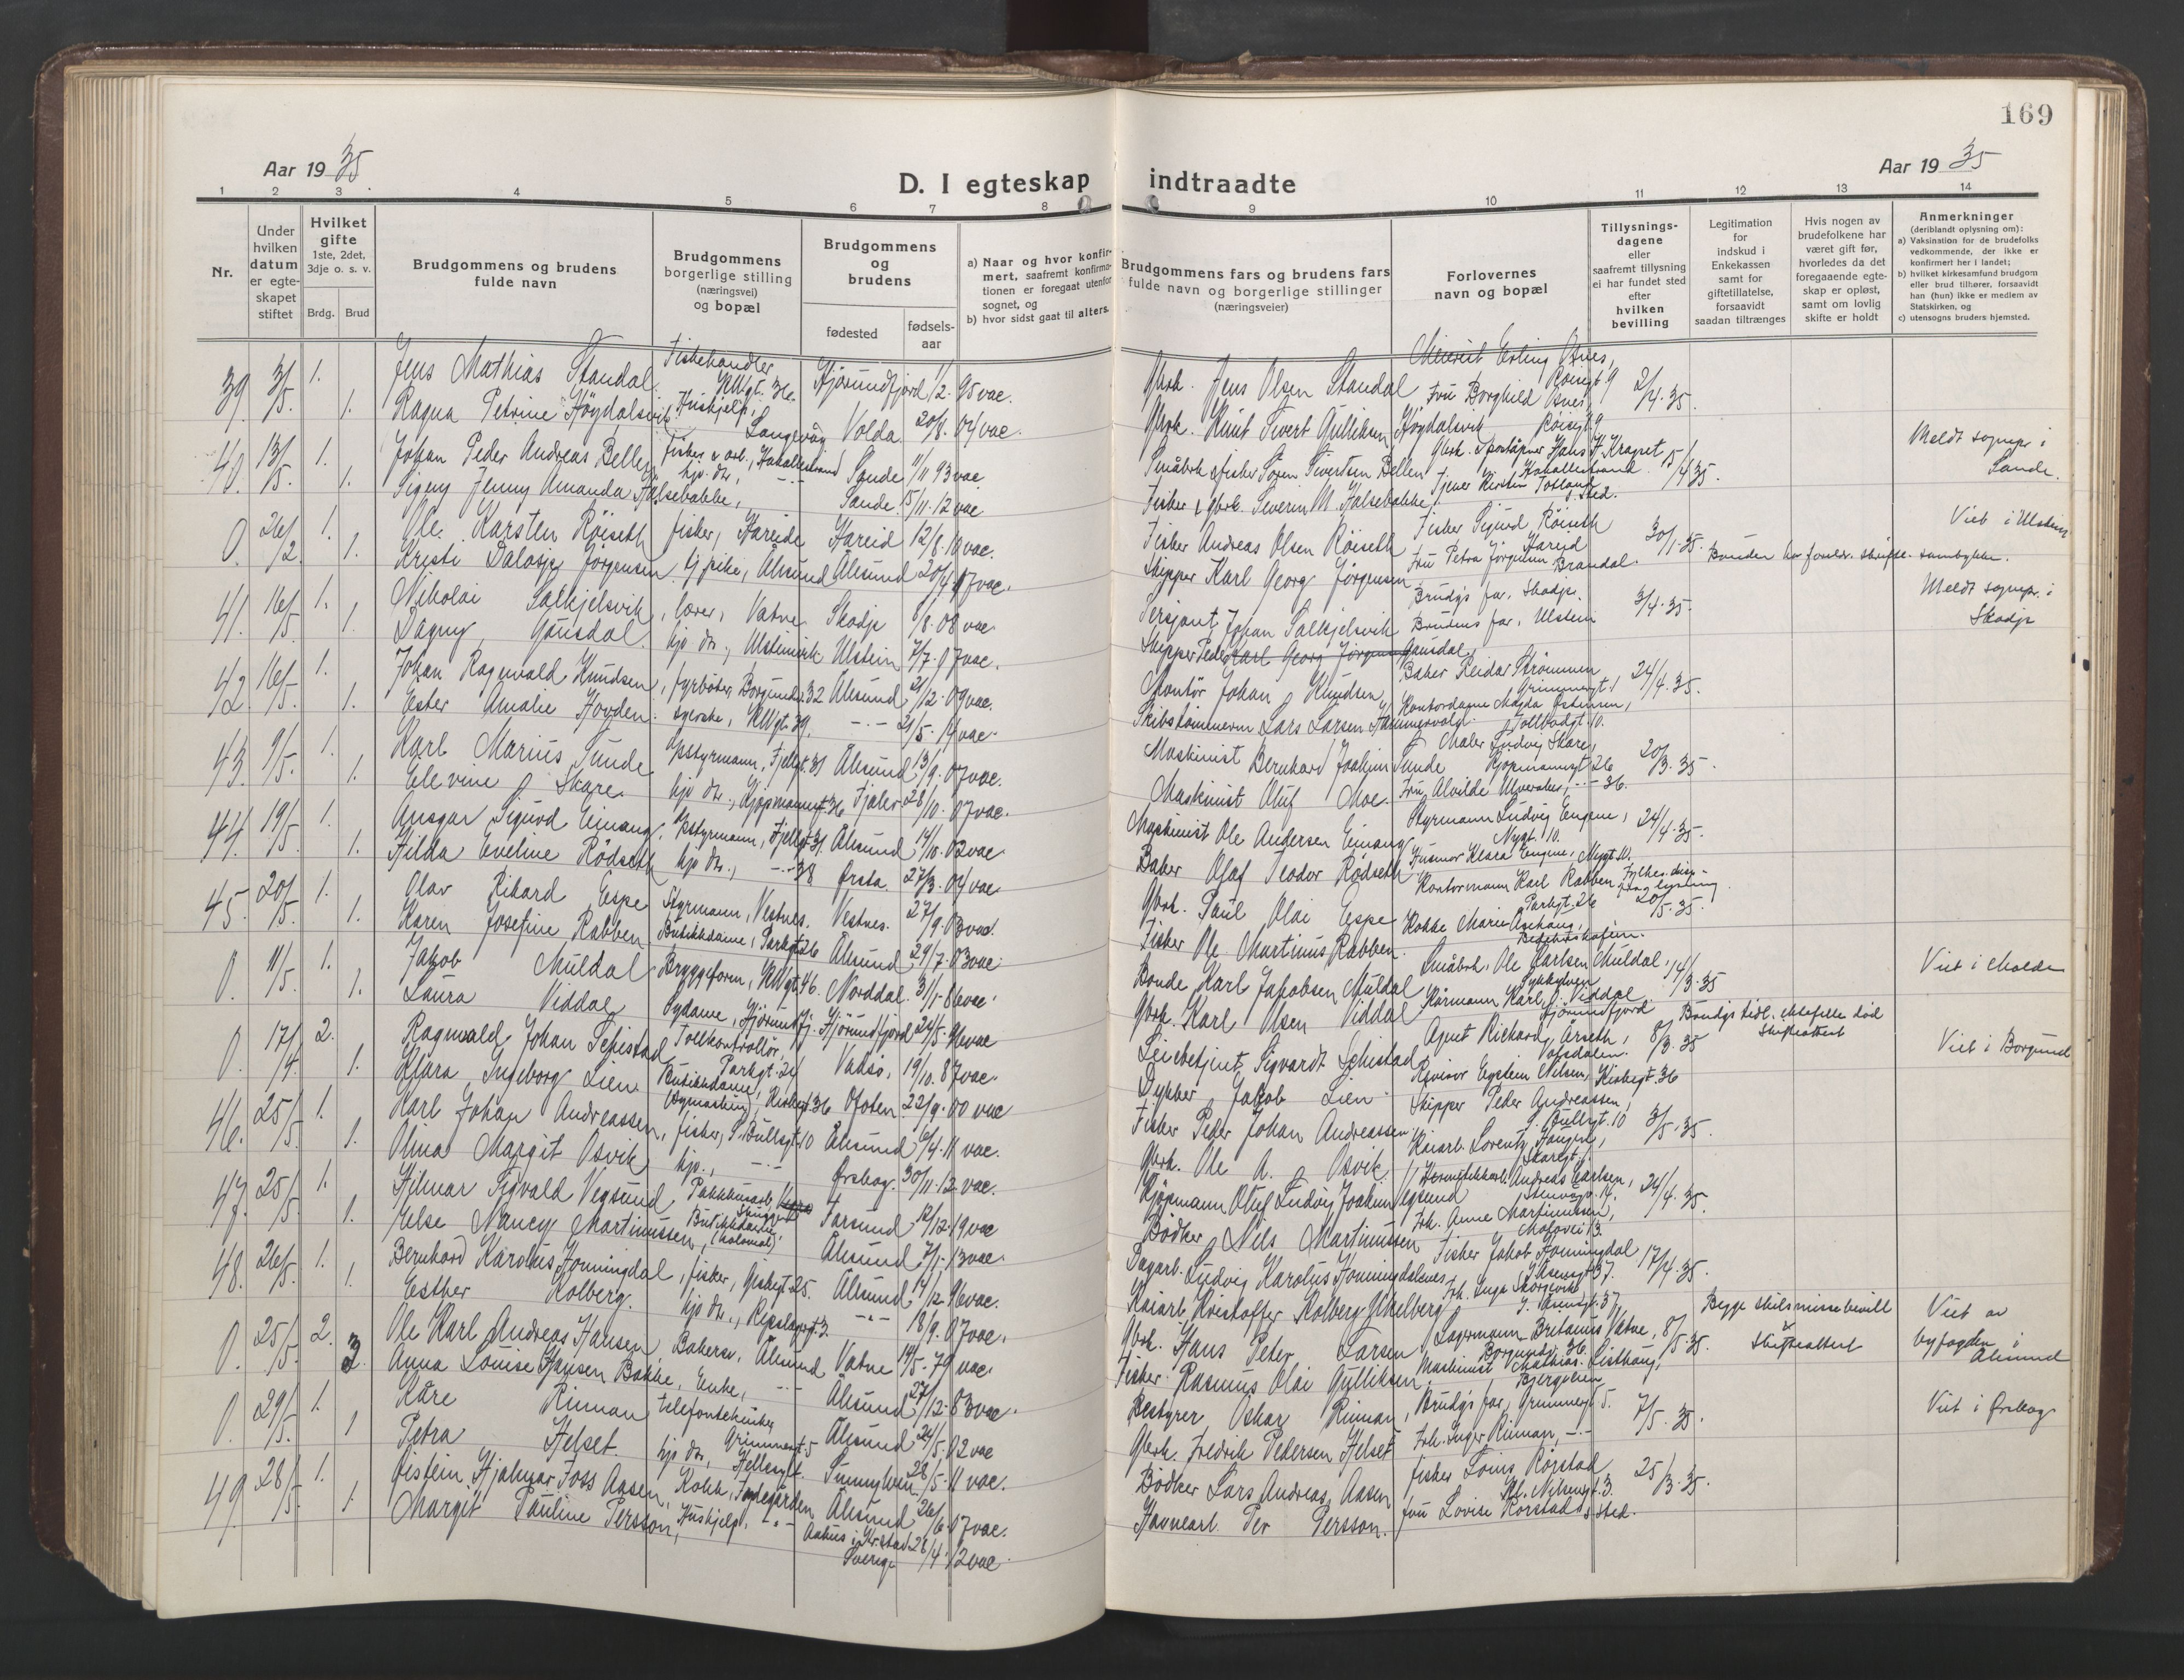 169
Aar 1935
Aar 1935
D. I egteskap indtraadte
1 2 3 4 5 6 7 8 9 10 11 12 13 14
Nr.
Under hvilken datum er egte-skapet stiftet
Hvilket gifte
1ste, 2det, 3dje o. s. v.
Brdg. Brud
Brudgommens og brudens fulde navn
Brudgommens borgerlige stilling (næringsvei) og bopæl
Brudgommens og brudens
fødested
fødsels-aar
a) Naar og hvor konfir-
mert, saafremt konfirma-
tionen er foregaat utenfor
sognet, og
b) hvor sidst gaat til alters.
Brudgommens fars og brudens fars
fulde navn og borgerlige stillinger
(næringsveier)
Forlovernes
navn og bopæl
Tillysnings-
dagene
eller
saafremt tillysning
ei har fundet sted
efter
hvilken
bevilling
Legitimation
for
indskud i
Enkekassen
samt for
giftetillatelse,
forsaavidt
saadan tiltrænges
Hvis nogen av
brudefolkene har
været gift før,
hvorledes da det
foregaaende egte-
skap er opløst,
samt om lovlig
skifte er holdt
Anmerkninger
(deriblandt oplysning om):
a) Vaksination for de brudefolks
vedkommende, der ikke er
konfirmert her i landet;
b) hvilket kirkesamfund brudgom
eller brud tilhører, forsaavidt
han (hun) ikke er medlem av
Statskirken, og
c) utensogns bruders hjemsted.
39. 3/5. 1. Jens Mathias Standal Fiskehandler Hjörundfjord 1/2. 95 vac. Gbrk. Jens Olsen Standal Erling Osnes, 2/4. 35.
1. Ragna Petrine Høydalsvik Hushjelp, Langevåg Volda 20/8. 04 vac. Gbrk. Knut Sivert Gulliksen Høydalsvik Fru Borghild Osnes,
40. 13/5. 1. Johan Peder Andreas Bellen Sande 11/11 93 vac Småbrk. & fisker Søren Sivertsen Bellen 15/4 35. Meldt sognepr. i Sande.
1. Signy Jenny Amanda Halsebakke, hjp. do., Sande 15/11. 12 vac Fisker & gbrk. Severin M. Halsebakke
0. 26/2. 1. Ole Karsten Röiseth fisker, Hareide Hareid 12/8. 10 vac. Fisker Andreas Olsen Röiseth Fisker Sigurd Röiseth Hareid 30/1. 35. Viet i Ulstein
1. Kristi Jörgensen Ålesund Ålesund 20/4. 17 vac. Skipper Karl Georg Jörgensen Fru Petra Jörgensen Brandal.
41. 16/5. 1. Nikolai Salkjelsvik, lærer, Vatne Skodje 1/8. 08 vac. Sersjant Johan Salkjelsvik Brudgs far, Skodje. 3/4. 35. Meldt sognepr. i Skodje
1. Dagny Gausdal hjp do., Ulsteinvik Ulstein 7/7. 07 vac. Skipper Peder Karl Georg Jörgensen Gausdal Brudens far, Ulstein
42. 16/5. 1. Johan Ragnvald Knudsen, fyrböter, Borgundv. 32 Ålesund 21/12. 09 vac. Montör Johan Knudsen, Baker Reidar Strömmen 24/4. 35.
1. Ester Amalie Hovden. syerske, 21/5. 14 vac. Skibstömmerm. Lars Larsen Kontordame Magda Tollbodgt. 10.
43. 9/5. 1. Karl Marius Sunde Ålesund 13/9. 07 vac. Maskinist Bernhard Joakim Sunde Maler Ludvig Skare, 20/3. 35.
1. Elevine Skare hjp do., 28/10. 07 vac. Maskinist Oluf Moe. Fru Alvilde 36.
44. 19/5. 1. Ansgar Sigurd Einang Ålesund 14/10. 03 vac Maskinist Ole Andersen Einang Styrmann Ludvig Engene, Nygt. 10. 24/4. 35.
1. Hilda Eveline Rödseth hjp do., 38 Ørsta. 27/3. 04 vac Baker Olaf Teodor Rödseth Husmor Klara Engene, Nygt. 10.
45. 20/5. 1. Olav Rikard Espe Styrmann, Vestnes. Vestnes. 27/9. 03 vac. Gbrk. Paul Olai Espe Kontormann Karl Rabben Parkgt. 26 20/5. 35.
1. Karen Josefine Rabben Butikkdame, Parkgt. 26 Ålesund 29/7. 03 vac. Fisker Ole Martinus Rabben. Kokke Marie
0. 11/5. 1. Jakob Muldal Norddal. 31/1. 86 vac. Bonde Karl Jakobsen Muldal Småbrk. Ole Karlsen Muldal, Sykkylven 14/3. 35 Viet i Molde
1. Laura Viddal Sydame, Hjörundfj. Hjörundfjord 24/5. 96 vac Gbrk. Karl Olsen Viddal Kårmann Karl J. Viddal Hjörundfjord
0. 17/4. 2. Ragnvald Johan Schistad Tollkontrollör, Parkgt. 21 Vadsö, 19/10. 87 vac. Sigvardt Schistad Agent Rickard Årseth, Volsdalen. 8/3. 35 Brudgs tidl. ektefelle död Skifteattest Viet i Borgund
1. Klara Ingeborg Lien Butikkdame, 36 Ofoten 22/9. 00 vac Dykker Jakob Lien Revisor Eystein Nilsen, Kirkegt. 36
46. 25/5. 1. Karl Johan Andreassen, fisker, O. Bullsgt. 10 Ålesund 6/4. 11 vac. Fisker Peder Johan Andreassen Skipper Peder Andreassen, O. Bullsgt. 10 3/5. 35.
1. Olina Margit Osvik hjp., Ørskog 30/11. 12 vac. Gbrk. Ole A. Osvik Kaiarb. Lorentz Haugen,
47. 25/5. 1. Hjlmar Sigvald Vegsund 12/12. 19 vac Kjöpmann Oluf Ludvig Joakim Vegsund Andreas Carlsen, 24/4. 35.
1. Else Nancy Martinussen, Butikkdame, (Kolonial) Ålesund 7/1. 13 vac. Bödker Nils Martinussen Frk. Anna Martinussen, 13.
48. 26/5. 1. Bernhard Karolius Honningdal, fisker, 25. Ålesund 14/12. 96 vac. Ludvig Karolus Honningdalsnes Fisker Jakob Honningdal 17/4. 35.
1. Esther Kolberg. hjp do., Ålesund 18/9. 07 vac. Kaiarb. Kristoffer Kolberg Frk. Inga
0. 25/5. 2. Ole Karl Andreas Hansen Bakersv., Ålesund Vatne 14/5. 79 vac. Gbrk. Hans Peter Larsen Lagermann Britanus Vatne, 8/5. 35. Begge skilsmissebevill & Skifteattest Viet av byfogden i Ålesund
3. Anna Louise Hansen Bakke, Enke, Ålesund 27/12. 83 vac. Fisker Rasmus Olai Gulliksen Maskinist Mathias Listhaug,
0. 29/5. 1. Kåre Rinnan telefontekniker, Grimmergt. 5 Ålesund 24/5. 02 vac Bestyrer Oskar Rinnan, Brudgs far, Grimmergt. 5. 7/5. 35. Viet i Ørskog
1 Petra Helset. hjp do, Hellesylt. Sunnylven 28/5. 11 vac. Gbrk. Fredrik Pedersen Helset Frk. Inger Rinnan,
49 28/5. 1. Øistein Hjalmar Foss Aasen, Kokk, Ålesund 26/6. 07 vac. Bödker Lars Andreas Aasen fisker Louis Rörstad 25/3. 35.
1. Margit Pauline Persson, Hushjelp, Sverige 28/4. 12 vac. Havnearb. Per Persson. fru Lovise Rorstad, s sted.